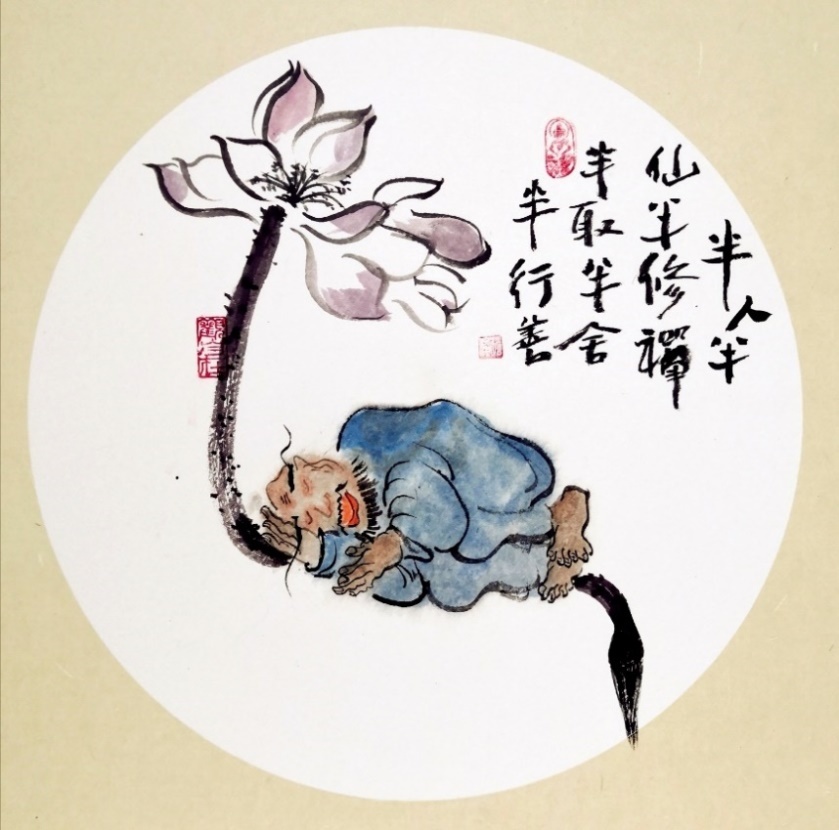 半人半
仙半修禪
半取半舍
半行善